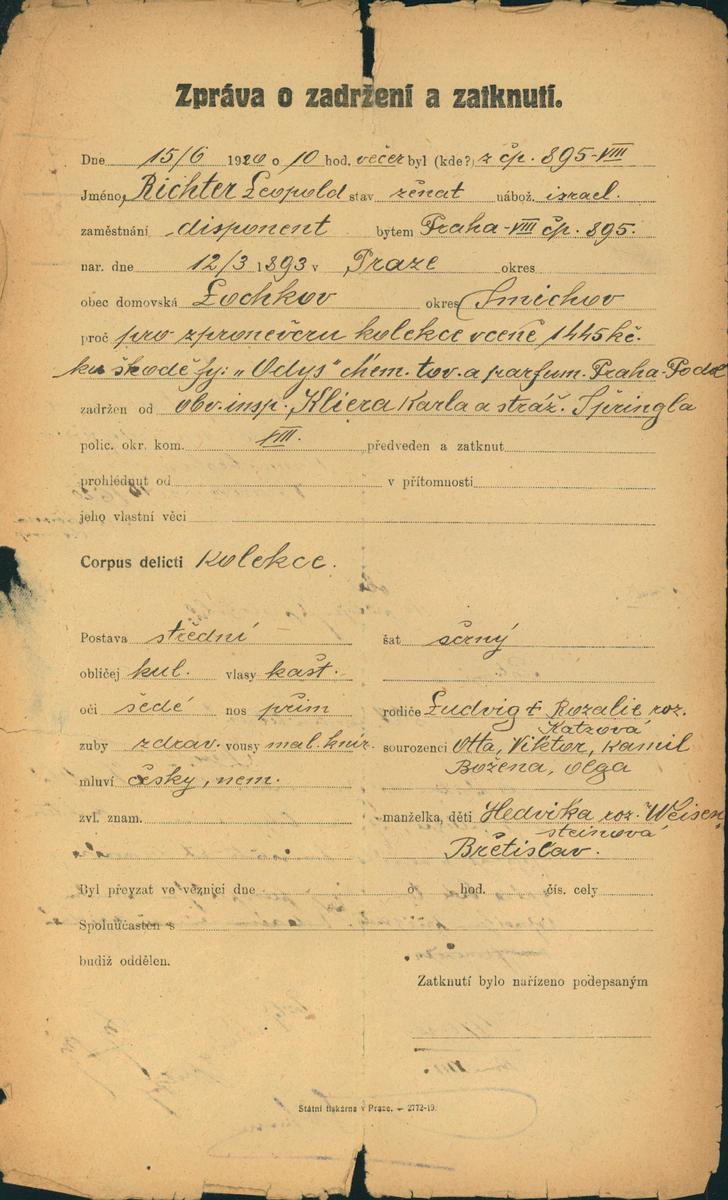 Zpráva o zadržení a zatknutí.
Dne 15/6 1920 o 10 hod. večer byl (kde?) z čp. 895-VIII
Jméno, Richter Leopold stav ženat nábož. israel.
zaměstnání disponent bytem Praha-VIII čp. 895.
nar. dne 12/3 1893 v Praze okres
obec domovská Lochkov okres Smichov
proč pro zproneveru kolekce v ceně 1445 kč.
ku škodě fy: „Odys" chem. tov. a parfum. Praha-
zadržen od obv. insp. Kliera Karla a stráž. Špringla
polic. okr. kom. VIII. předveden a zatknut
prohlédnut od v přítomnosti
jeho vlastní věci
Corpus delicti Kolekce.
Postava střední šat šerný
obličej kul. vlasy kašt.
oči šedé nos přim rodiče Ludvig + Rozalie roz. Katzová
zuby zdrav. vousy mal. knír. sourozenci Otta, Viktor, Kamil
mluví česky, nem. Božena, Olga
zvl. znam. manželka, děti Hedvika roz. Weisensteinová
Břetislav.
Byl převzat ve věznici dne o hod. čís. cely
Spoluúčasten s
budiž oddělen.
Zatknutí bylo nařízeno podepsaným
Státní tiskárna v Praze. — 2772-19.